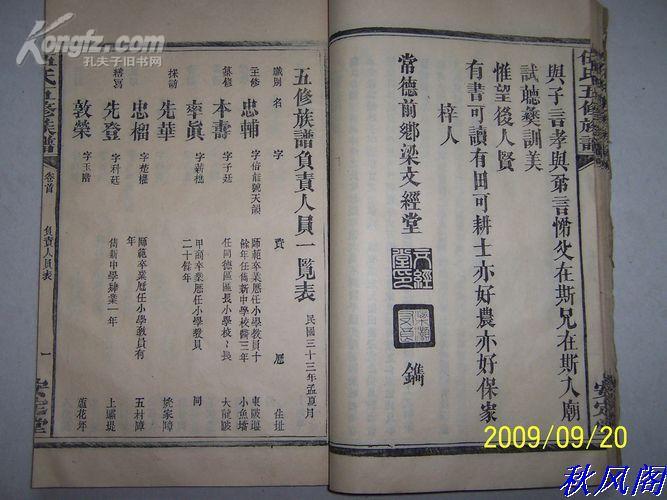 與子言孝與弟言悌父在斯兄在斯入廟
試聽彝訓美
惟望後人賢
有書可讀有田可耕士亦好農亦好保家
梓人
常德前鄉梁文經堂
文經堂氏
鐫
五修族譜
五修族譜負責人員一覽表
民國三十三年孟夏月
職別
名
字
資
歷
住址
主修
忠輔
師範卒業歷任小學教員十
餘年任傋新中學校醫三年
本壽
字子廷
任同德區區長小學校長
大龍陂
率眞
甲商卒業歷任小學教員
二十餘年
同
採訪
先華
忠榴
字楚權
師範卒業歷任小學教員有
年
五村障
繕寫
先登
字科廷
新中學肄業一年
上壩堤
敦榮
字玉階
蘆花坪
五修族譜
卷首
負責人員表
一
安定堂
Kongfz.com
孔夫子旧书网
2009/09/20
秋风阁